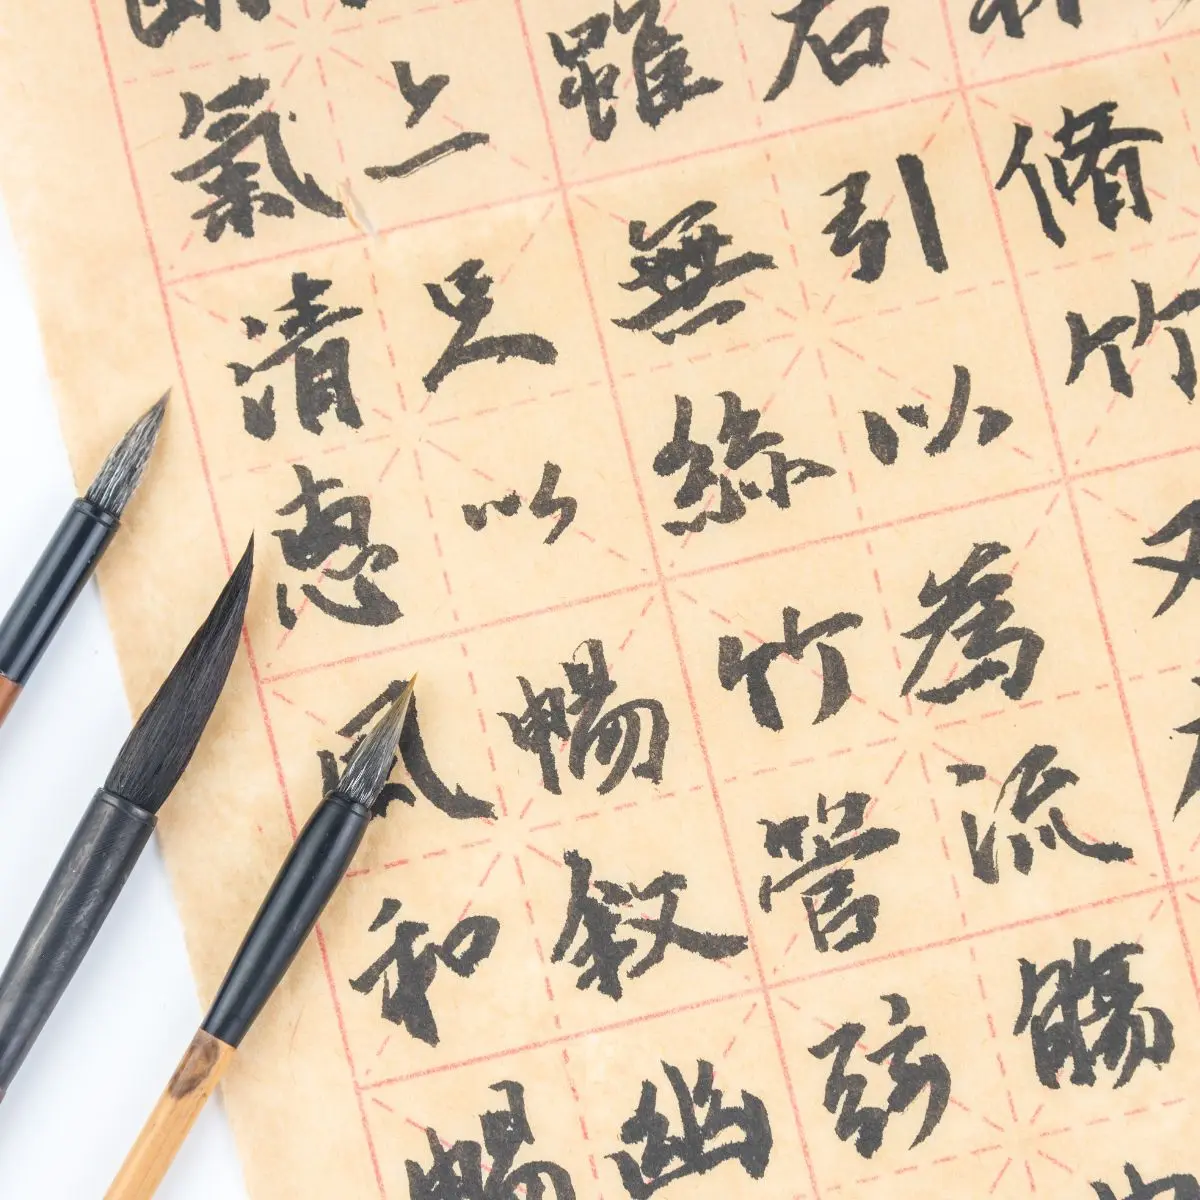 脩竹又
右引以為流觴
雖無絲竹管弦
上足以暢叙幽
氣清惠風和暢